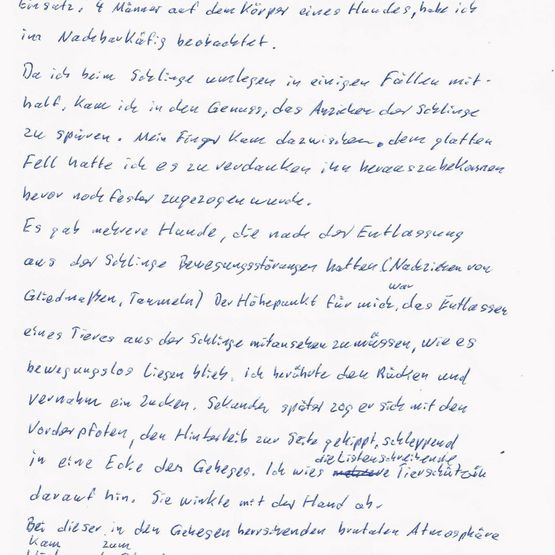 Einsatz, 4 Männer auf dem Körper eines Hundes, habe ich
im Nachbarkäfig beobachtet.
Da ich beim Schlinge umlegen in einigen Fällen mit-
half, kam ich in den Genuss, das Anziehen der Schlinge
zu spüren. Mein Finger kam dazwischen, dem glatten
Fell hatte ich es zu verdanken ihn herauszubekommen
bevor noch fester zugezogen wurde.
Es gab mehrere Hunde, die nach der Entlassung
aus der Schlinge Bewegungsstörungen hatten (Nachziehen von
Gliedmaßen, Taumeln) Der Höhepunkt für mich war, das Entlassen
eines Tieres aus der Schlinge mitansehen zu müssen, wie es
bewegungslos liegen blieb. ich berührte den Rücken und
vernahm ein Zucken. Sekunden später zog er sich mit den
Vorderpfoten, den Hinterleib zur Seite gekippt, schleppend
in eine Ecke des Geheges. Ich wies die Listenschreibende Tierschützin
darauf hin. Sie winkte mit der Hand ab.
Bei dieser in den Gehegen herrschenden brutalen Atmosphäre
kam zum